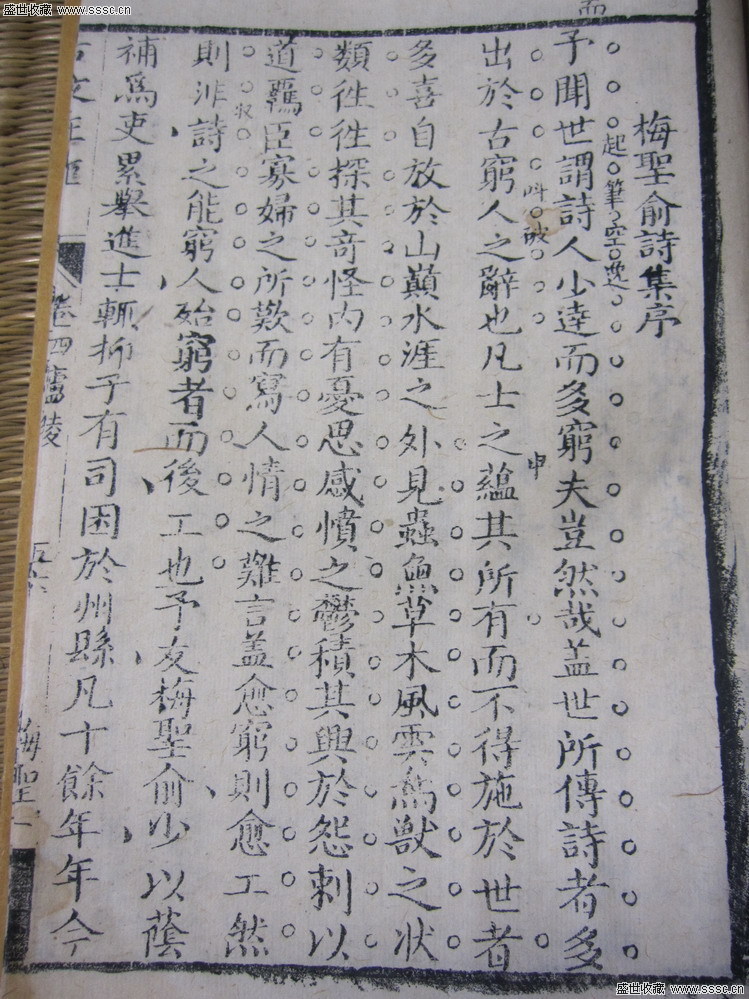 盛世收藏 www.sssc.cn
盛世收藏 www.sssc.cn
梅聖俞詩集序
起筆空逸
予聞世謂詩人少達而多窮夫豈然哉盖世所傳詩者多
叫破
申
出於古窮人之辭也凡士之蘊其所有而不得施於世者
多喜自放於山巔水涯之外見蟲魚草木風雲鳥獸之状
類徃徃探其奇怪内有憂思感憤之鬱積其興於怨刺以
道羈臣寡婦之所歎而寫人情之難言盖愈窮則愈工然
収
則非詩之能窮人殆窮者而後工也予友梅聖俞少以蔭
補爲吏累舉進士輒抑于有司困於州縣凡十餘年年今
卷四廬陵
梅聖
盛世收藏 www.sssc.cn
盛世收藏 www.sssc.cn